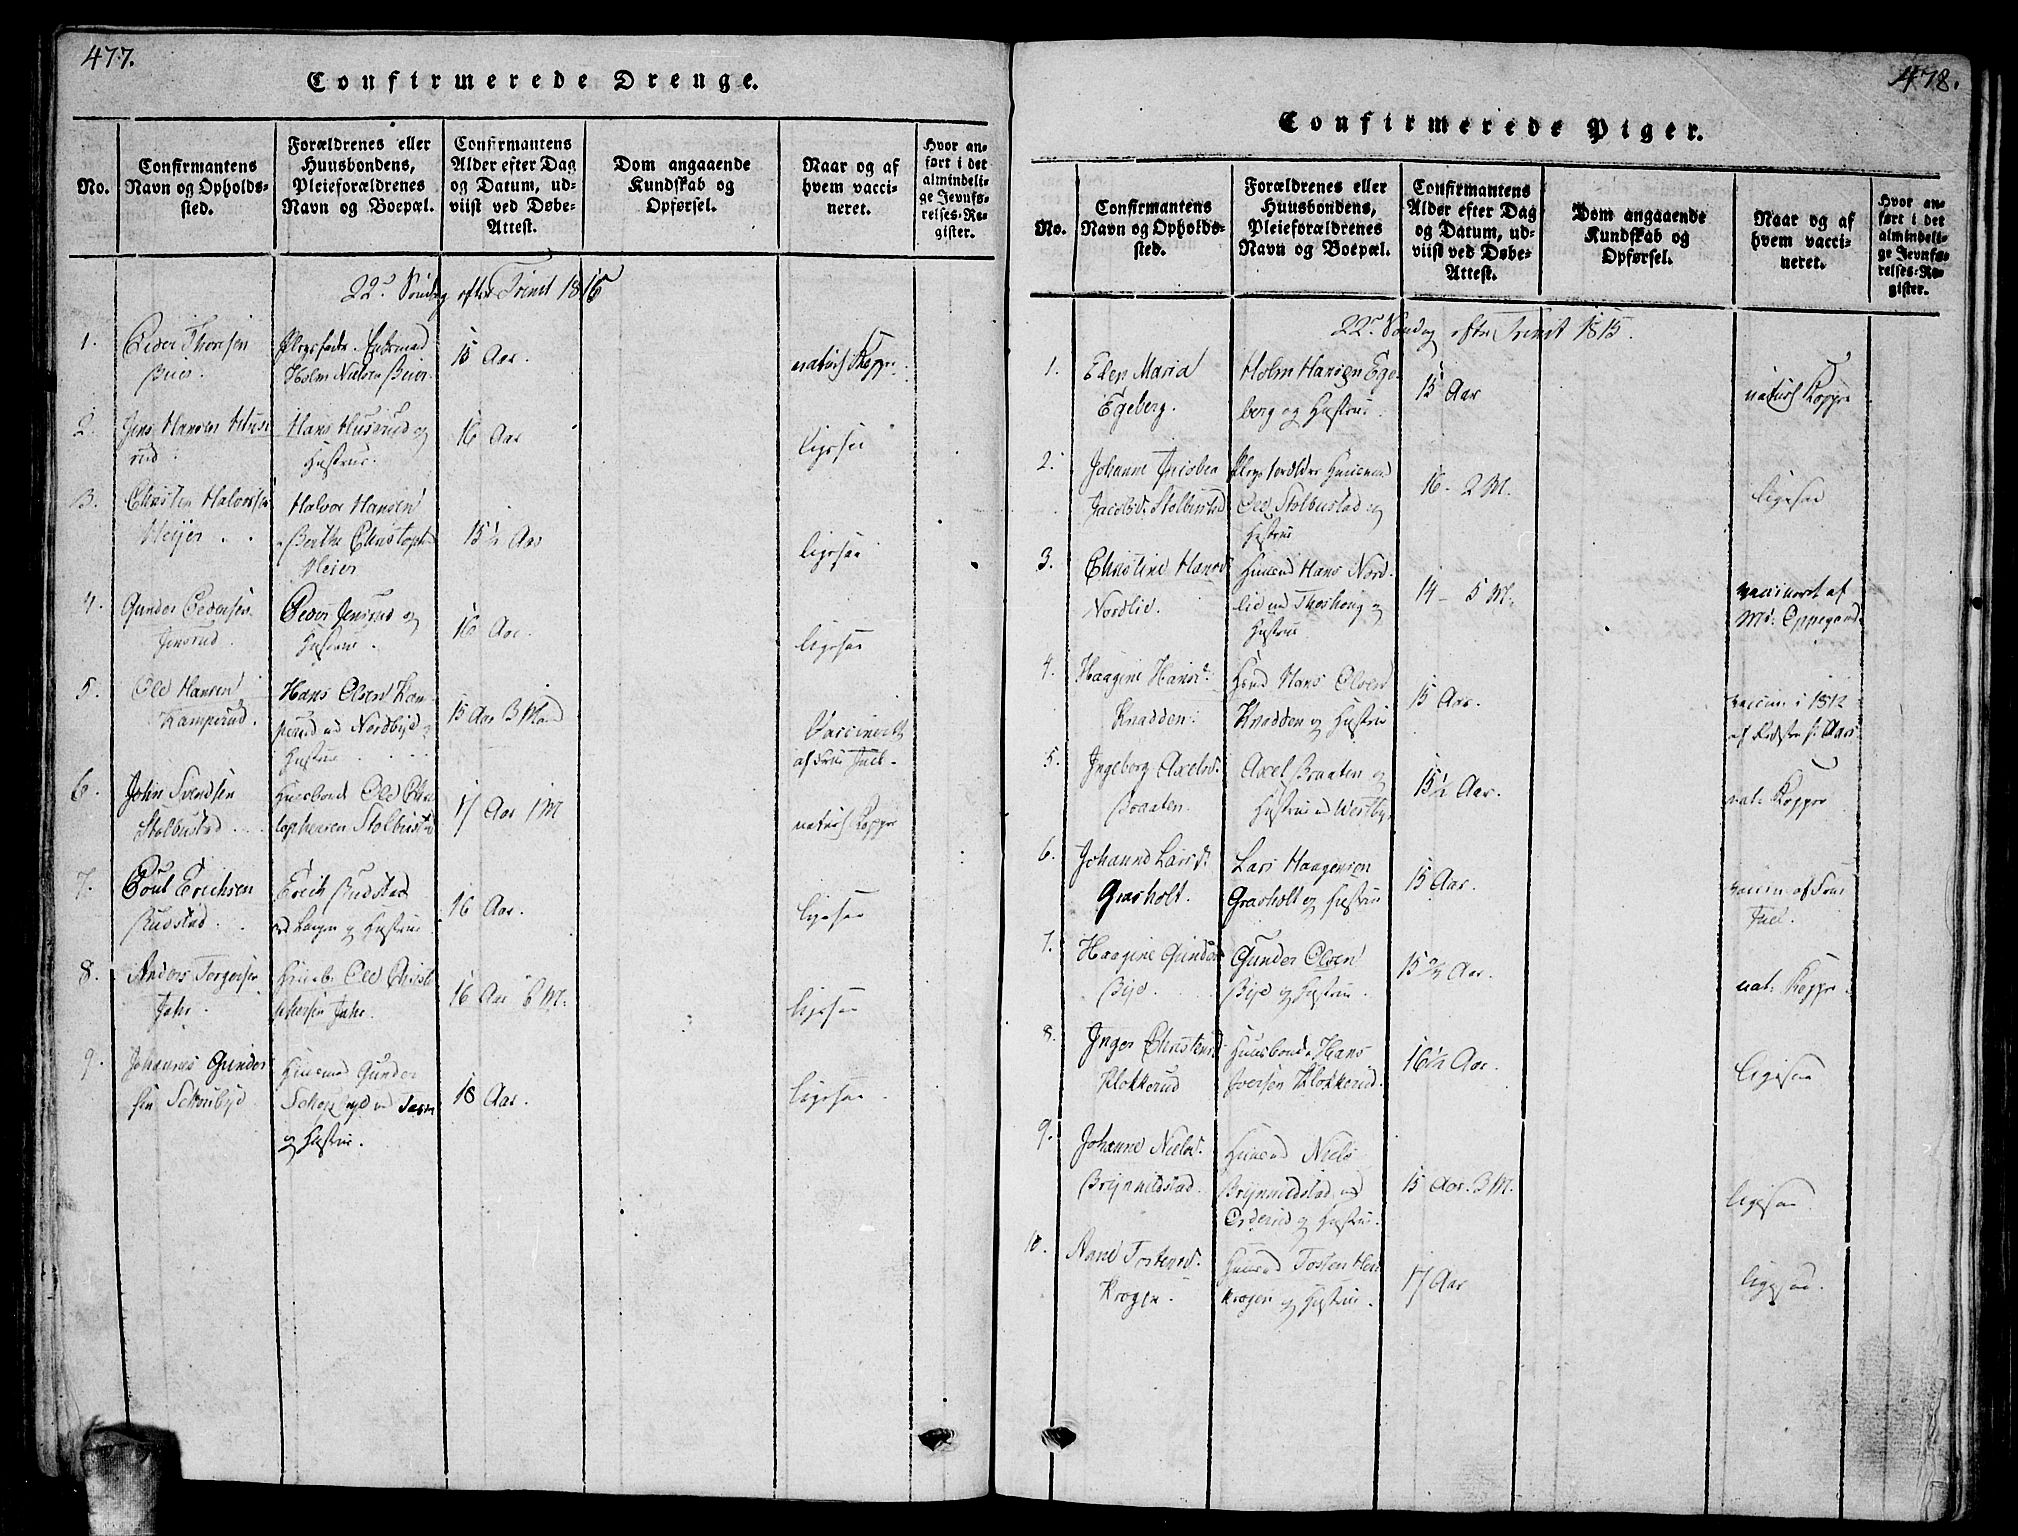 477.
Confirmerede Drenge.
No.
Confirmantens
Navn og Opholds-
sted.
Forældrenes eller
Huusbondens,
Pleieforældrenes
Navn og Boepæl.
Confirmantens
Alder efter Dag
og Datum, ud-
viist ved Døbe-
Attest.
Dom angaaende
Kundskab og
Opførsel.
Naar og af
hvem vacci-
neret.
Hvor an-
ført i det
almindeli-
ge Jevnfø-
relses-Re-
gister.
22de Søndag efter Trinit 1815
1. Peder Thoresen
Buer.
Holm Nielsen Buer
15 Aar.
naturl Kopper
2. Jens Hansen Huse
rud.
Hans Huserud og
Hustrue.
16 Aar
ligesaa
3. Christen Halvorsen
Meijer
Halvor Hansen
Berthe Christoph
Meier
15½ Aar
ligesaa
4. Gunder Pedersen
Jensrud.
Peder Jensrud og
Hustrue.
16 Aar.
ligesaa
5. Ole Hansen
Kamperud.
Hans Olsen Kam-
perud ved Nordbye og
Hustrue
15 Aar 3 Maan
Vaccineret
af Frue Juel.
6. John Svendsen
Stolbustad
Huusbond Ole Chri
tophersen Stolbustad
17 Aar 1 M
naturl Kopper
7. Poul Erichsen
Rudstad.
Erich Rudstad
og Hustrue
16 Aar.
ligesaa
8. Anders Torgersen
Jahr.
Huusb. Ole Christ
ophersen Jahr.
16 Aar 6 M.
ligesaa
9. Johannes Gunder
sen Schoubye
Huusmd Gunder
og Hustrue.
18 Aar.
ligesaa
478.
Confirmerede Piger.
No.
Confirmantens
Navn og Opholds-
sted.
Forældrenes eller
Huusbondens,
Pleieforældrenes
Navn og Boepæl.
Confirmantens
Alder efter Dag
og Datum, ud-
viist ved Døbe-
Attest.
Dom angaaende
Kundskab og
Opførsel.
Naar og af
hvem vacci-
neret.
Hvor an-
ført i det
almindeli-
ge Jevnfø-
relses-Re-
gister.
22de Søndag efter Trinit 1815.
1. Elen Maria
Egeberg.
Holm Hansen Ege-
berg og Hustrue.
15 Aar
naturl Kopper
2. Johanne
Jacobsd. Stolbustad
Ole Stolbustad og
Hustrue
16 - 2 M.
ligesaa
3. Christine Hansd.
Nordlie.
Huusmd Hans Nord-
lie og
Hustrue
14 - 5 M.
vaccineret af
Md. Oppegaard
4. Haagine Hansd.
Knadden.
Hans Olsen
Knadden og Hustrue
15 Aar.
vaccin. i 1812
5. Ingeborg Axelsd.
Braaten.
Axel Braaten og
Hustrue ved Westbye
15½ Aar.
nat. Kopper
6. Johanne Larsd.
Grasholt.
Lars Haagensen
Grasholt og Hustrue
15 Aar.
vaccin. af Frue
Juel.
7. Haagine Gunders
Bye.
Gunder Olsen
Bye og Hustrue.
15¾ Aar.
nat. Kopper
8. Inger Christensd
Klokkerud
Huusbonde Hans
Iversen Klokkerud.
16½ Aar.
ligesaa
9. Johanne Nielsd.
Brynnildstad.
Huusmd Niels
Brynnildstad ved
Orderud og Hustrue.
15 Aar. 3 M.
ligesaa
10. Anne Tostensd.
Krogen.
Huusmd Tosten
Krogen og Hustrue.
17 Aar
ligesaa.